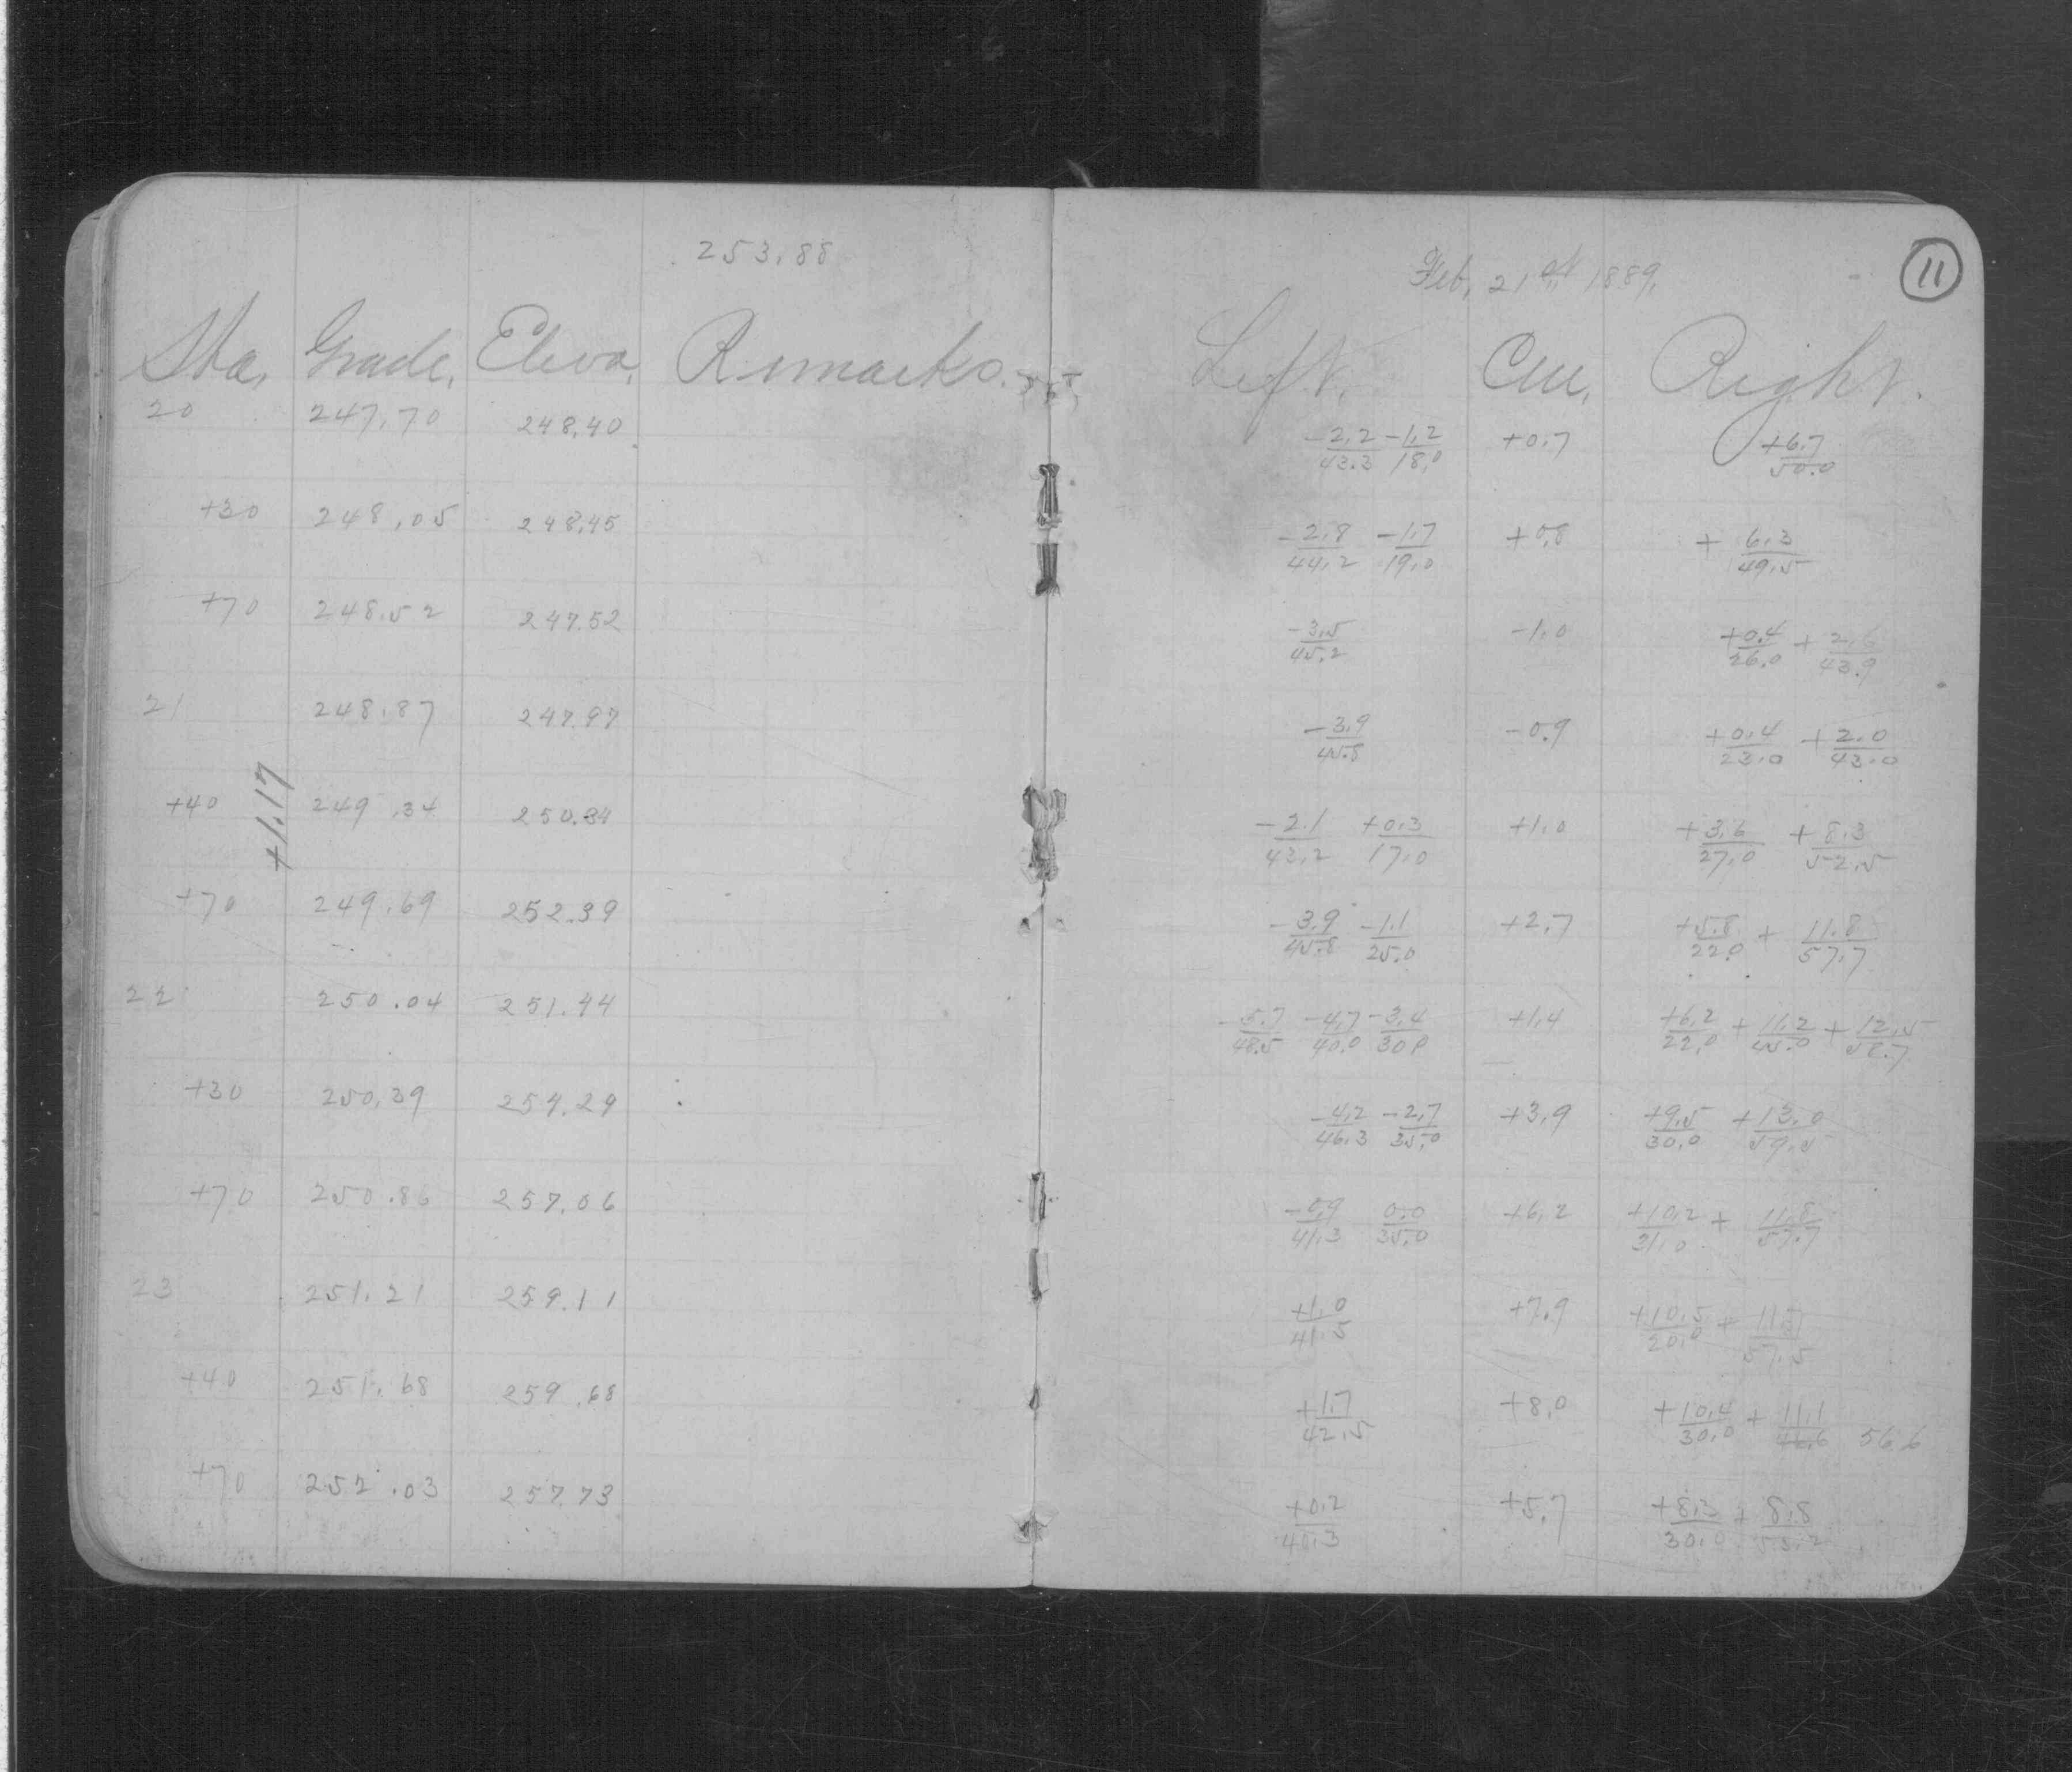 253.88
Feb. 21st 1889.
11
Sta. Grade. Eleva. Remarks. Left. Cen. Right.
20 247.70 248.40 -2.2/43.3 -1.2/18.0 +0.7 +6.7/50.0
+30 248.05 248.45 -2.8/44.2 -1.7/19.0 +0.8 +6.3/49.5
+70 248.52 247.52 -3.5/45.2 -1.0 +0.4/26.0 +2.6/43.9
21 248.87 247.97 -3.9/45.8 -0.9 +0.4/23.0 +2.0/43.0
+1.17
+40 249.34 250.34 -2.1/43.2 +0.3/17.0 +1.0 +3.6/27.0 +8.3/52.5
+70 249.69 252.39 -3.9/45.8 -1.1/25.0 +2.7 +5.8/22.0 +11.8/57.7
22 250.04 251.44 -5.7/48.5 -4.7/40.0 -3.4/30.0 +1.4 +6.2/22.0 +11.2/45.0 +12.5/58.7
+30 250.39 254.29 -4.2/46.3 -2.7/35.0 +3.9 +9.5/30.0 +13.0/59.5
+70 250.86 257.06 -0.9/41.3 0.0/35.0 +6.2 +10.2/31.0 +11.8/57.7
23 251.21 259.11 +1.0/41.5 +7.9 +10.5/20.0 +11.7/57.5
+40 251.68 259.68 +1.7/42.5 +8.0 +10.4/30.0 +11.1/46.6 56.6
+70 252.03 257.73 +0.2/40.3 +5.7 +8.3/30.0 +8.8/53.2